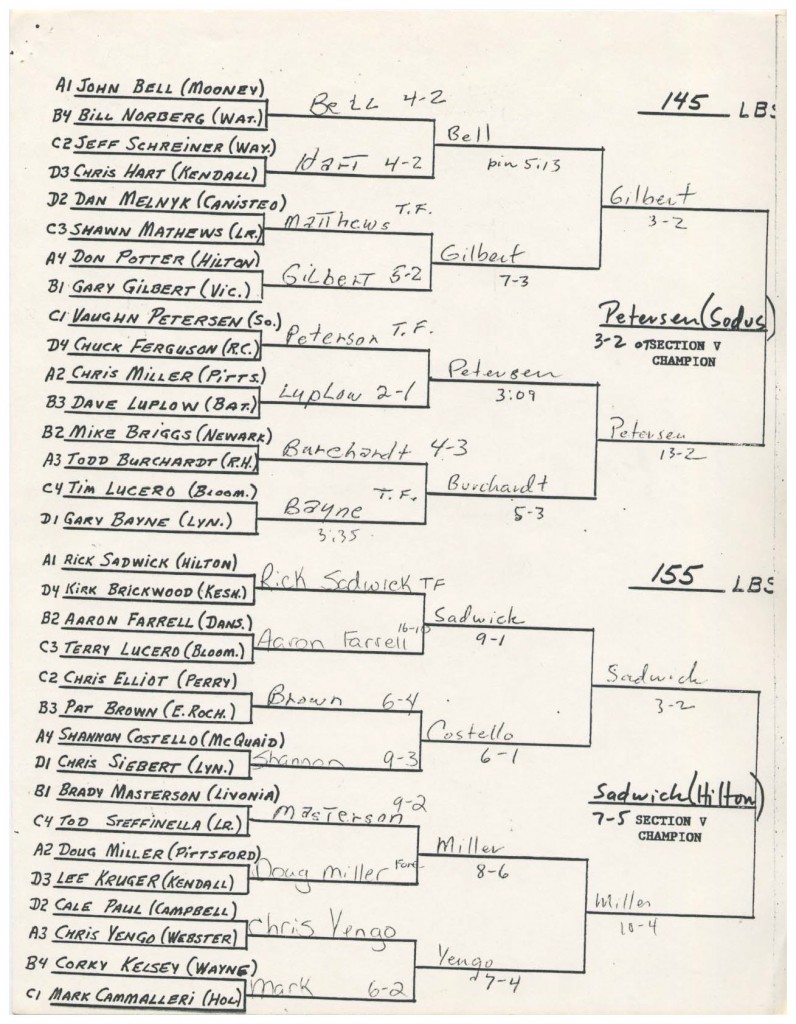 145 LBS
A1 JOHN BELL (MOONEY)
B4 BILL NORBERG (WAT.)
C2 JEFF SCHREINER (WAY.)
D3 CHRIS HART (KENDALL)
D2 DAN MELNYK (CANISTEO)
C3 SHAWN MATHEWS (LR.)
A4 DON POTTER (HILTON)
B1 GARY GILBERT (VIC.)
C1 VAUGHN PETERSEN (SO.)
D4 CHUCK FERGUSON (R.C.)
A2 CHRIS MILLER (PITTS.)
B3 DAVE LUPLOW (BAT.)
B2 MIKE BRIGGS (NEWARK)
A3 TODD BURCHARDT (R.H.)
C4 TIM LUCERO (BLOOM.)
D1 GARY BAYNE (LYN.)
BELL 4-2
HART 4-2
Matthews T.F.
GILBERT 5-2
Peterson T.F.
Luplow 2-1
Burchardt 4-3
BAYNE T.F.
3:35
Bell
pin 5:13
Gilbert
7-3
Petersen
3:09
Burchardt
5-3
Gilbert
3-2
Petersen
13-2
Petersen (Sodus)
3-2 OT SECTION V
CHAMPION
155 LBS
A1 RICK SADWICK (HILTON)
D4 KIRK BRICKWOOD (KESH.)
B2 AARON FARRELL (DANS.)
C3 TERRY LUCERO (BLOOM.)
C2 CHRIS ELLIOT (PERRY)
B3 PAT BROWN (E. ROCH.)
A4 SHANNON COSTELLO (MCQUAID)
D1 CHRIS SIEBERT (LYN.)
B1 BRADY MASTERSON (LIVONIA)
C4 TOD STEFFINELLA (LR.)
A2 DOUG MILLER (PITTSFORD)
D3 LEE KRUGER (KENDALL)
D2 CALE PAUL (CAMPBELL)
A3 CHRIS YENGO (WEBSTER)
B4 CORKY KELSEY (WAYNE)
C1 MARK CAMMALLERI (HOL)
Rick Sadwick TF
Aaron Farrell 16-10
Brown 6-4
Shannon 9-3
Masterson 9-2
Doug Miller
Chris Yengo
Mark 6-2
Sadwick
9-1
Costello
6-1
Miller
8-6
Yengo
7-4
Sadwick
3-2
Miller
10-4
Sadwick (Hilton)
7-5 SECTION V
CHAMPION